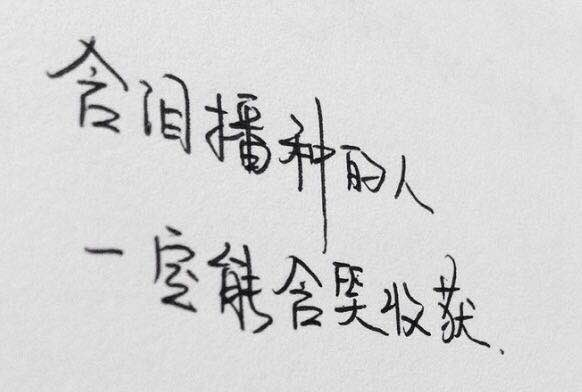 含泪播种的人
一定能含哭收获.